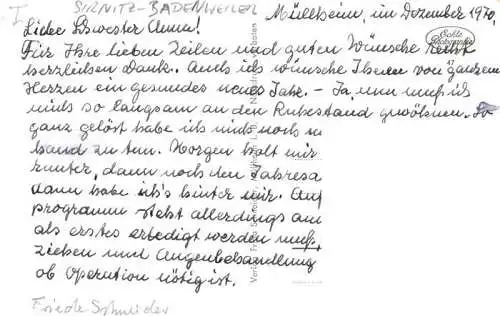 I SIRNITZ-BADENWEILER
Müllheim, im Dezember 1970,
Liebe Schwester Anna!
Echte Photographie
Für Ihre lieben Zeilen und guten Wünsche recht
herzlichen Dank. Auch ich wünsche Ihnen von ganzem
Herzen ein gesundes neues Jahr. – Ja, nun muß ich
mich so langsam an den Ruhestand gewöhnen. So
ganz gelöst habe ich mich noch
hand zu tun. Morgen holt mir
runter, dann noch den Jahresa
dann habe ich's hinter mir. Auf
programm steht allerdings am
als erstes erledigt werden muß,
ziehen und Augenbehandlung
ob Operation nötig ist.
Friede Schneider